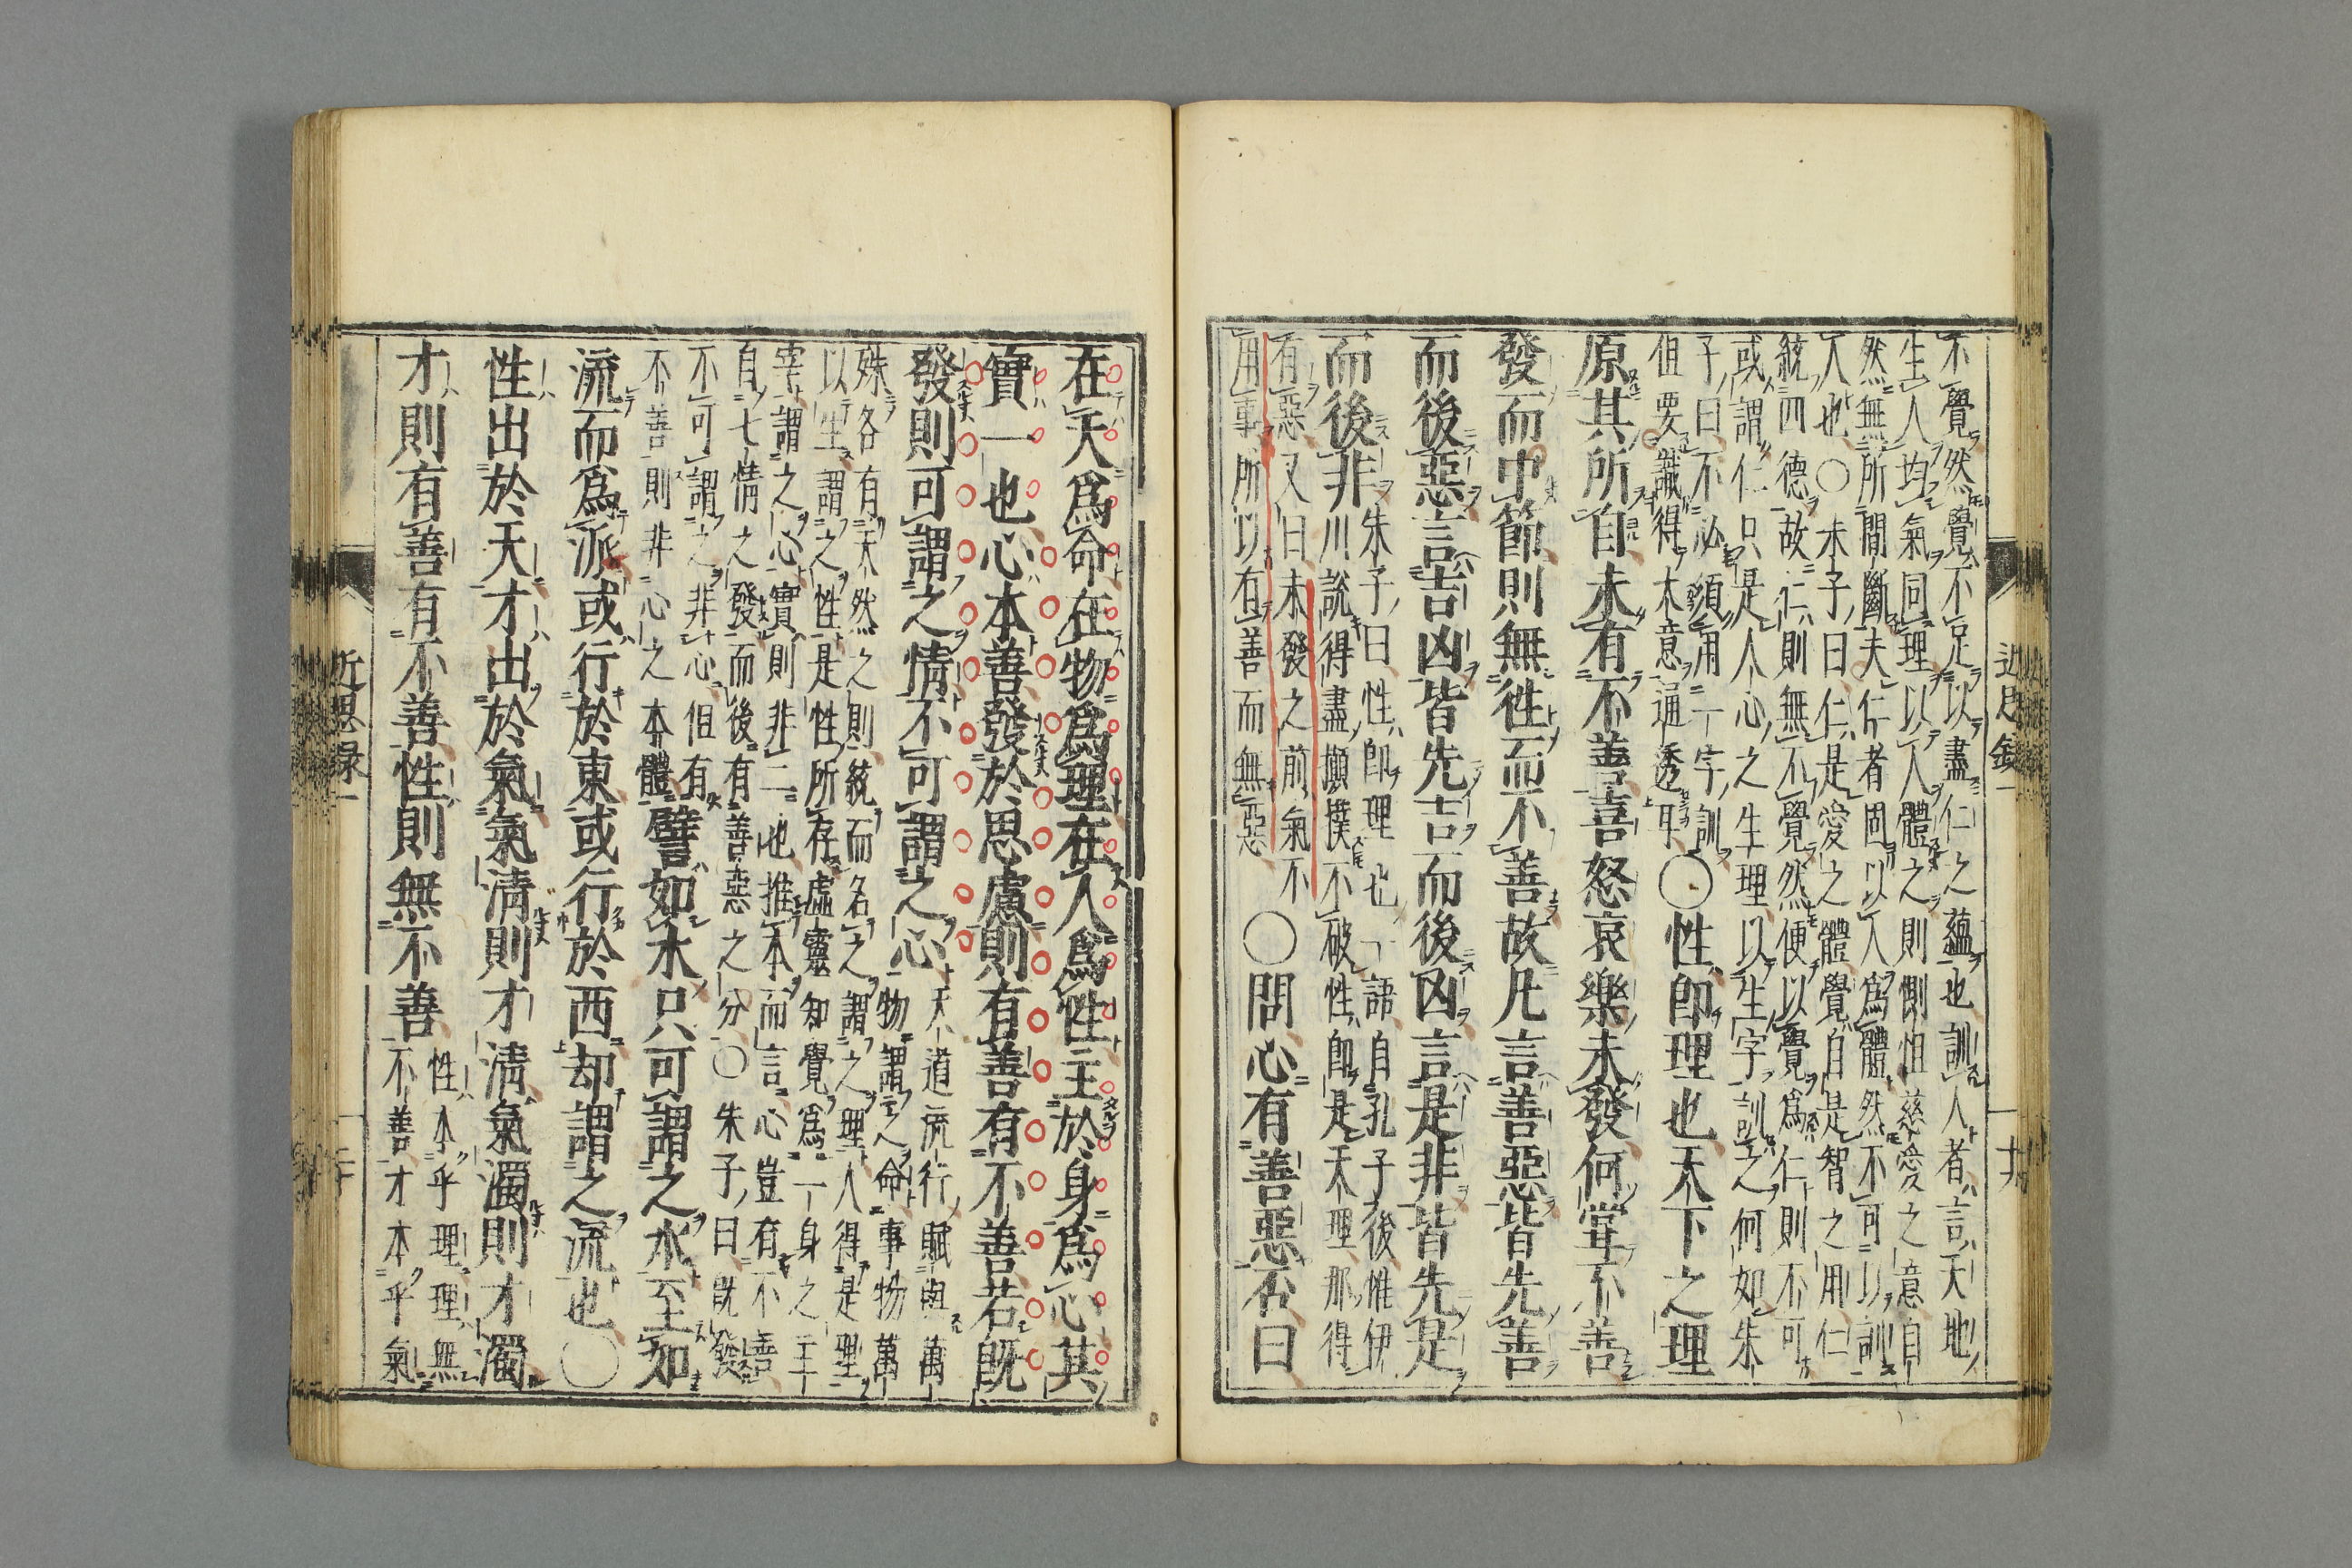 不覺然覺不足以盡仁之蘊也訓人者言天地
生人均氣同理以人體之則惻怛慈愛之意自
然無所間斷夫仁者固以人爲體然不可以訓
人也○朱子曰仁是愛之體覺自是智之用仁
統四德故仁則無不覺然便以覺爲仁則不可
或謂仁只是人心之生理以生字訓之何如朱
子曰不必須用一字訓
但要識得大意通透耳○性即理也天下之理
原其所自未有不善喜怒哀樂未發何甞不善
發而中節則無徃而不善故凡言善惡皆先善
而後惡言吉凶皆先吉而後凶言是非皆先是
而後非
朱子曰性即理也一語自孔子後惟伊
川說得盡攧撲不破性即是天理那得
有惡又曰未發之前氣不
用事所以有善而無惡
○問心有善惡否曰
近思録一
十九
在天爲命在物爲理在人爲性主於身爲心其
實一也心本善發於思慮則有善有不善若旣
發則可謂之情不可謂之心
天道流行賦與萬
物謂之命事物萬
殊各有天然之則統而名之謂之理人得是理
以生謂之性是性所存虛靈知覺爲一身之主
宰謂之心實則非二也推本而言心豈有不善
自七情之發而後有善惡之分○朱子曰旣發
不可謂之非心但有
不善則非心之本體
譬如水只可謂之水至如
流而爲派或行於東或行於西却謂之流也○
性出於天才出於氣氣淸則才淸氣濁則才濁
才則有善有不善性則無不善
性本乎理理無
不善才本乎氣
近思録一
二十